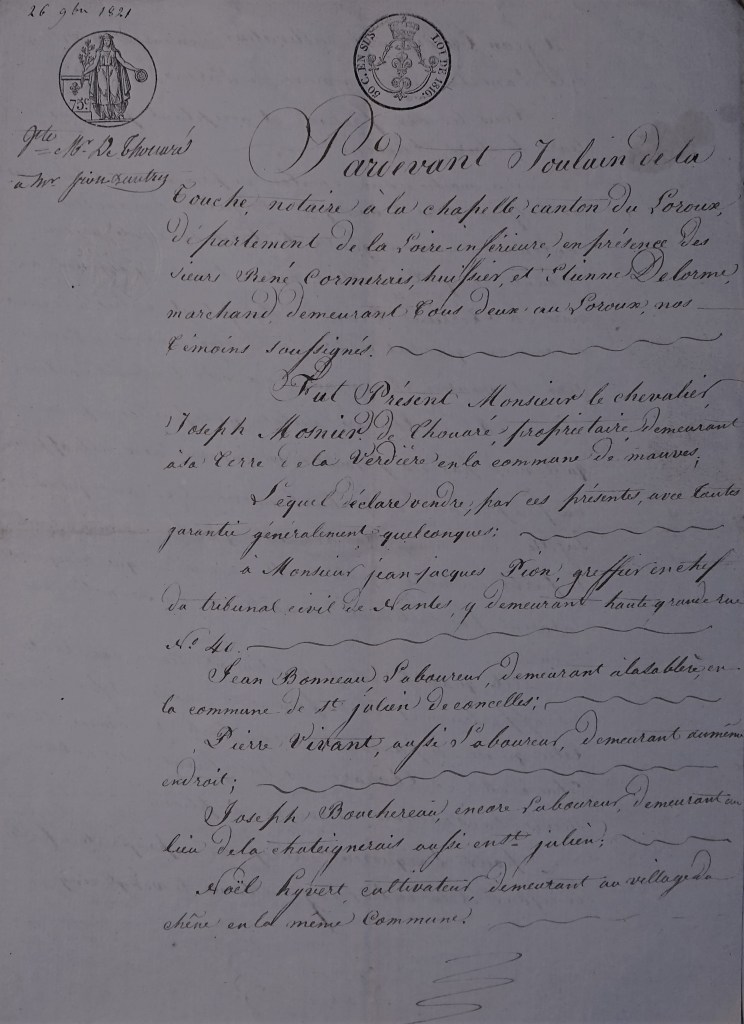 26 9bre 1821
75c.
50 C. EN SUS
LOI DE 1816.
Vte Mr De Thouaré
à Mr pion & autres
Pardevant Toulain de la
Touche, notaire à la chapelle, canton du Loroux,
département de la Loire-inférieure, en présence des
sieurs René Cormerais, huissier, et Etienne Delorme,
marchand, demeurant tous deux au Loroux, nos
témoins soussignés.
Fut Présent Monsieur le chevalier
Joseph Mosnier de Thouaré, propriétaire, demeurant
à sa terre de la Verdière en la commune de mauves;
Lequel déclare vendre, par ces présentes, avec toutes
garantie généralement quelconques;
à Monsieur jean-jacques Pion, greffier en chef
du tribunal civil de Nantes, y demeurant haute grande rue
No. 40.
Jean Bonneau, Laboureur, demeurant à la sablère, en
la commune de st julien de concelles;
Pierre Vivant, aussi Laboureur, demeurant au même
endroit;
Joseph Bouchereau, encore Laboureur, demeurant au
lieu de la chateignerais aussi en st. julien;
Noël hyvert, cultivateur, demeurant au village du
chêne en la même Commune.